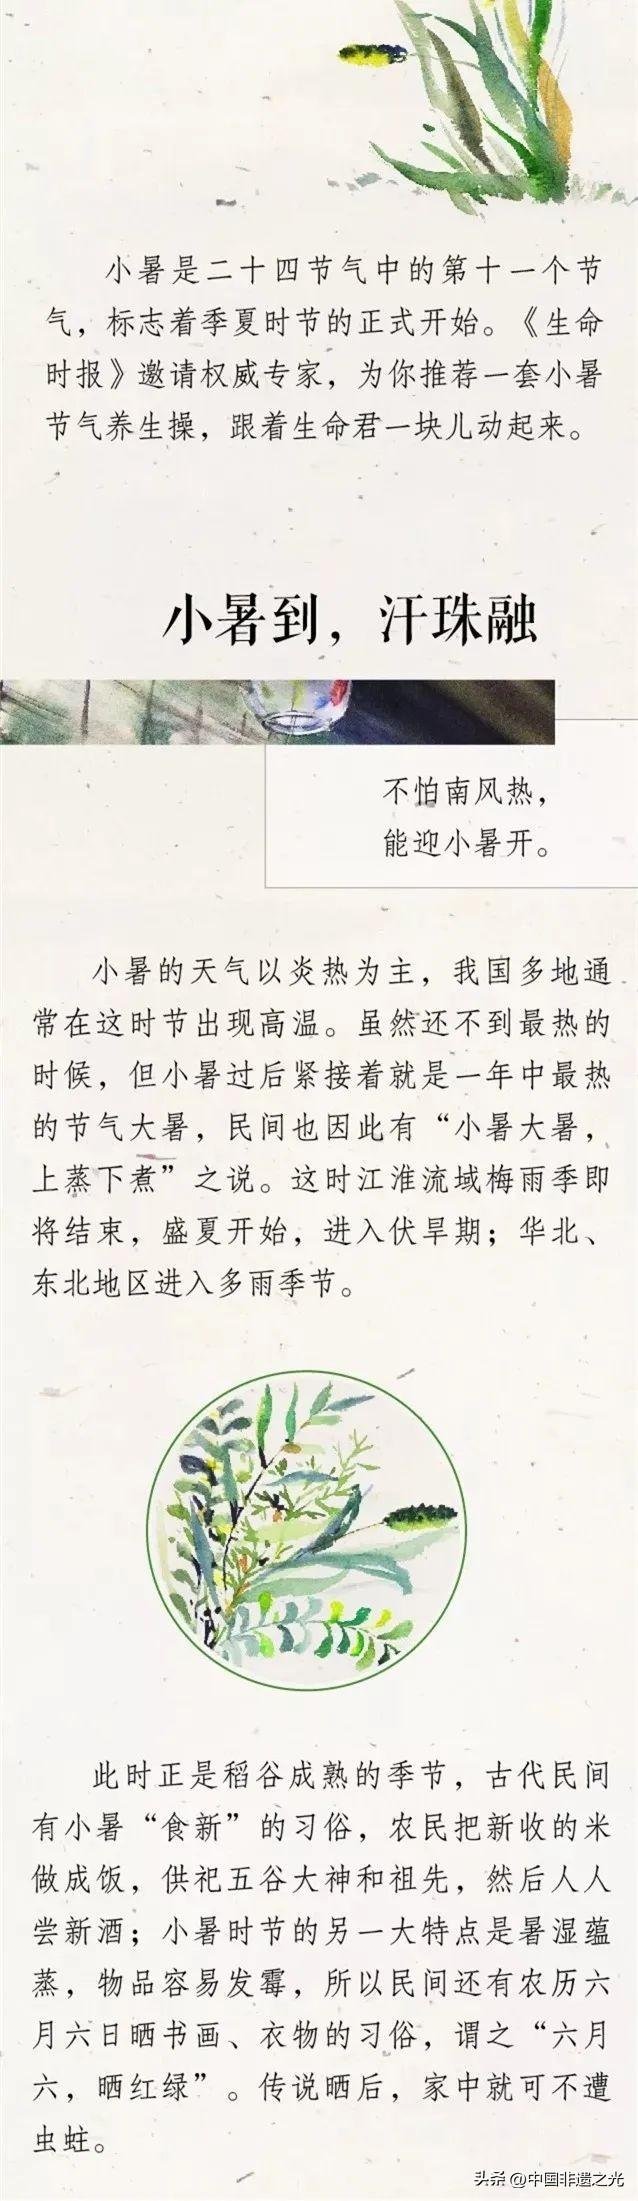 小暑是二十四节气中的第十一个节
气，标志着季夏时节的正式开始。《生命
时报》邀请权威专家，为你推荐一套小暑
节气养生操，跟着生命君一块儿动起来。
小暑到，汗珠融
不怕南风热，
能迎小暑开。
小暑的天气以炎热为主，我国多地通
常在这时节出现高温。虽然还不到最热的
时候，但小暑过后紧接着就是一年中最热
的节气大暑，民间也因此有“小暑大暑，
上蒸下煮”之说。这时江淮流域梅雨季即
将结束，盛夏开始，进入伏旱期；华北、
东北地区进入多雨季节。
此时正是稻谷成熟的季节，古代民间
有小暑“食新”的习俗，农民把新收的米
做成饭，供祀五谷大神和祖先，然后人人
尝新酒；小暑时节的另一大特点是暑湿蕴
蒸，物品容易发霉，所以民间还有农历六
月六日晒书画、衣物的习俗，谓之“六月
六，晒红绿”。传说晒后，家中就可不遭
虫蛀。
头条 @中国非遗之光